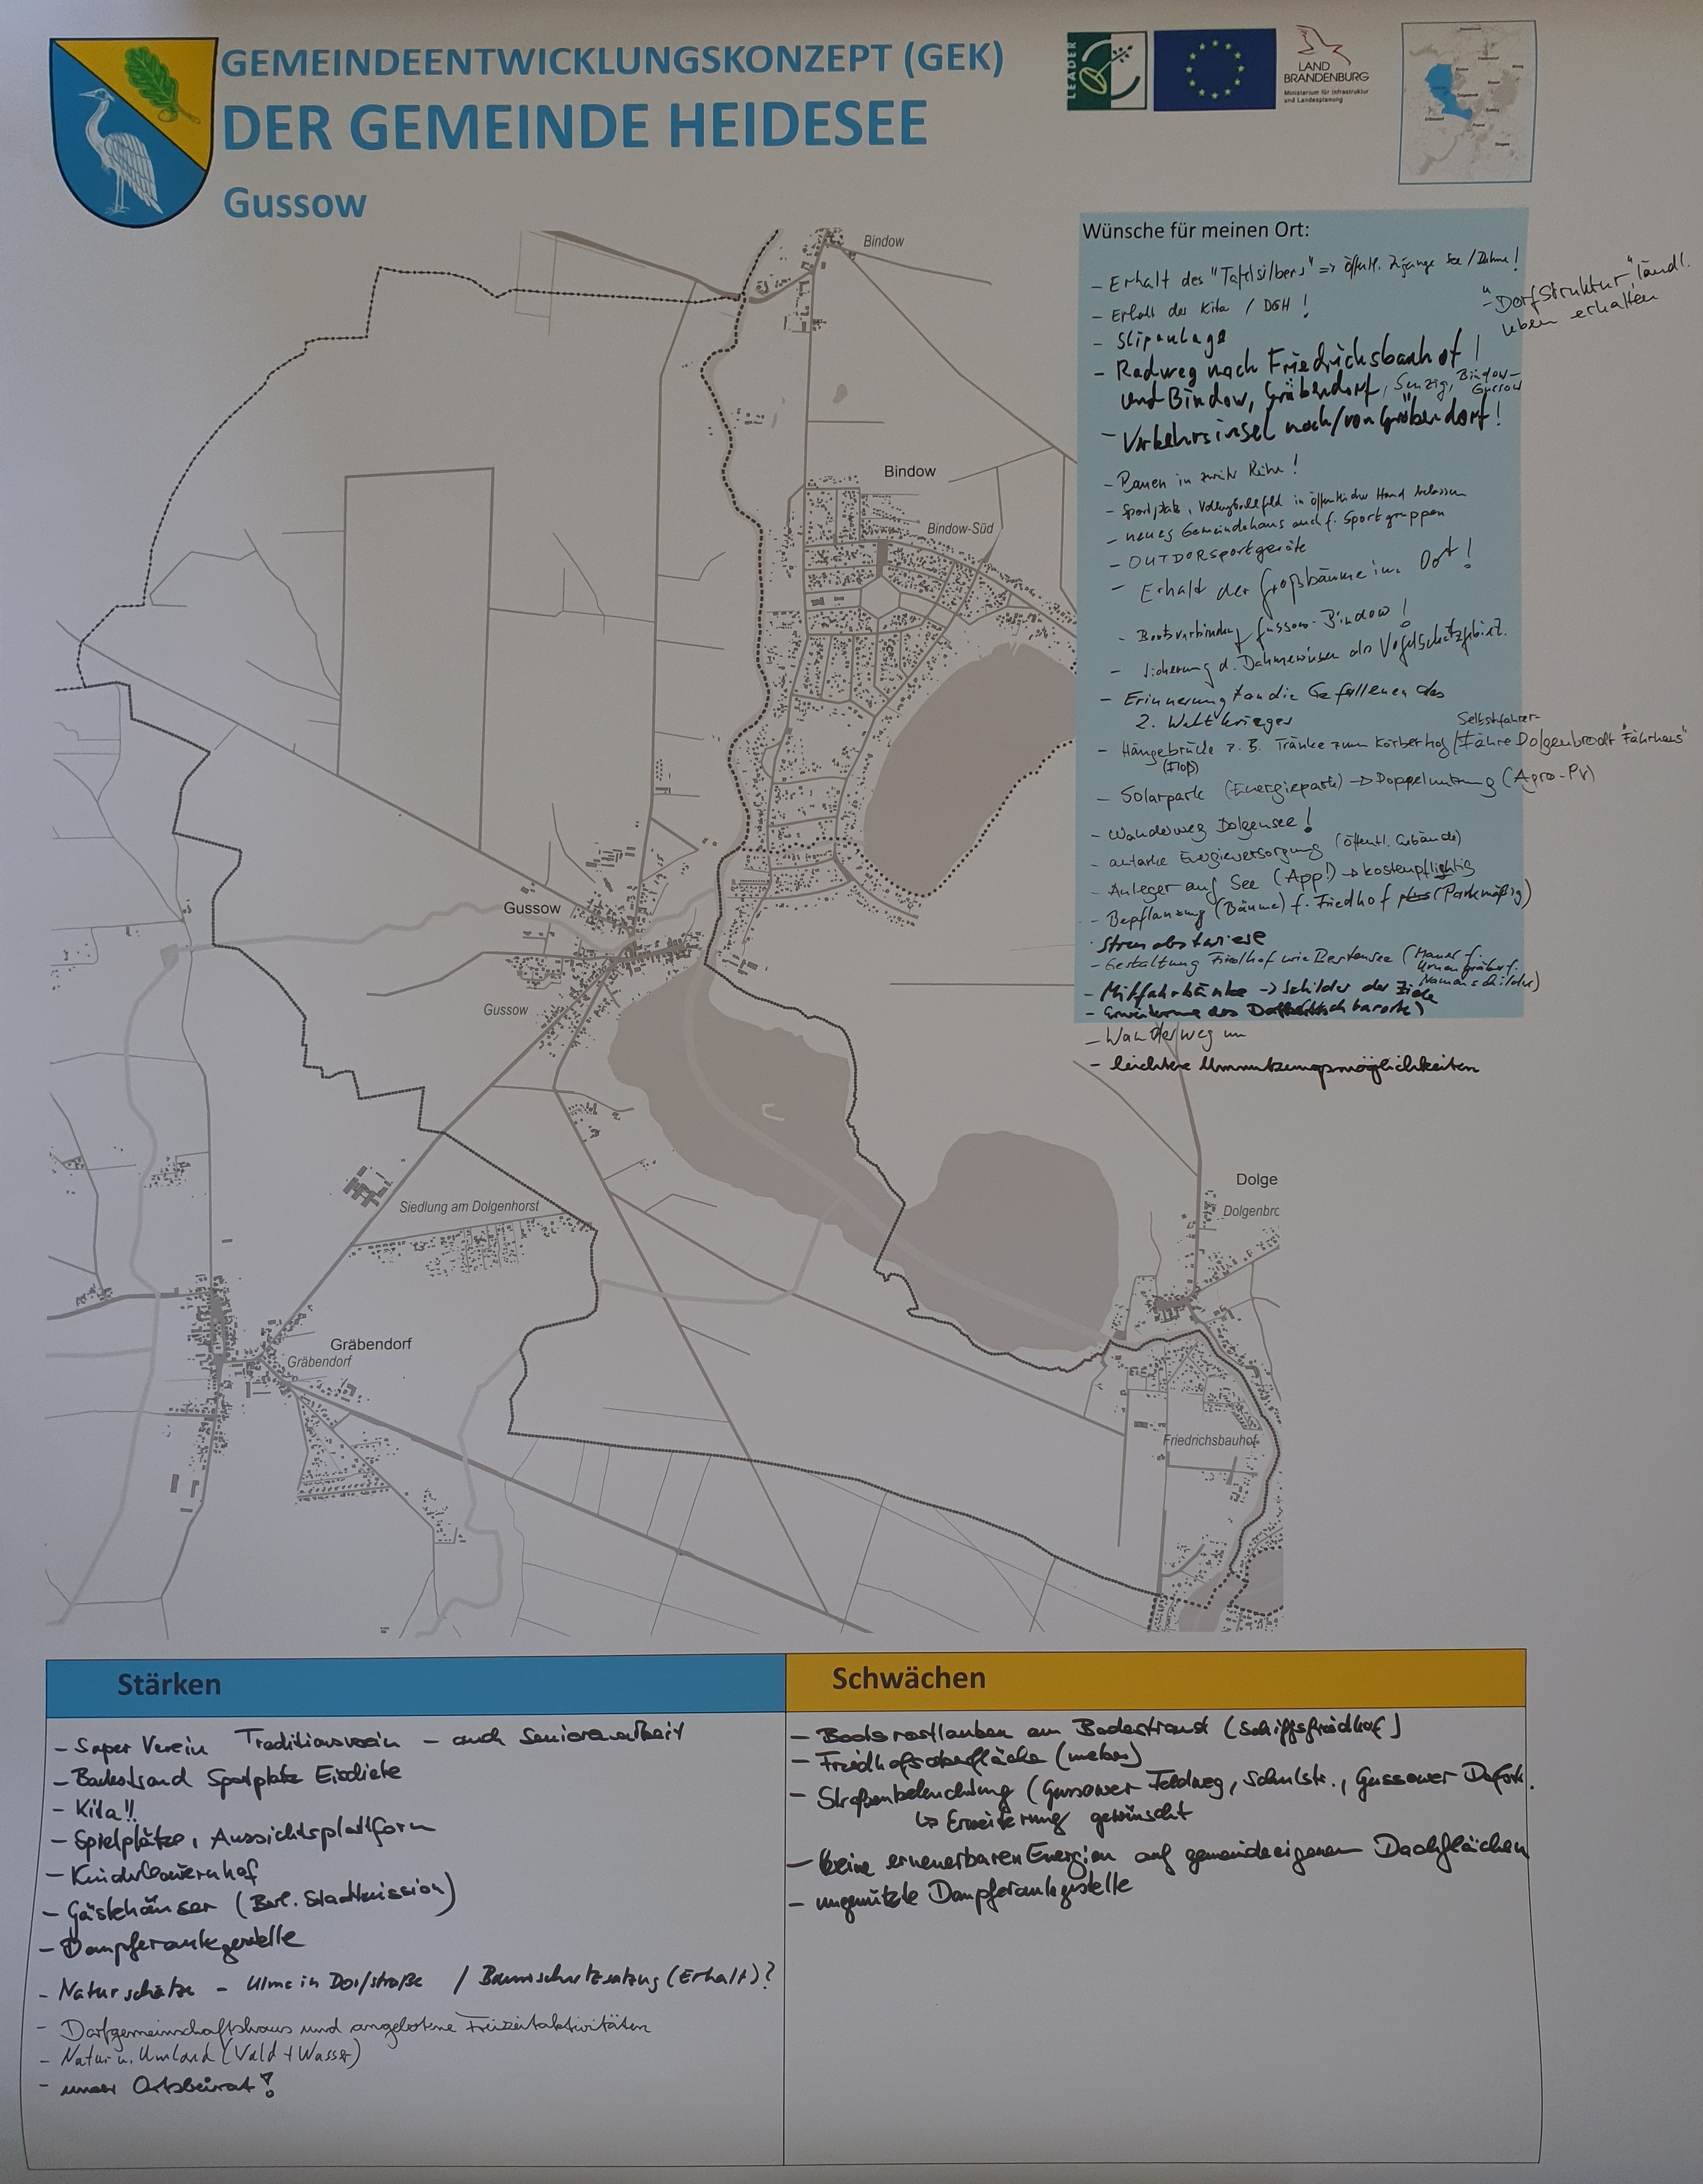 GEMEINDEENTWICKLUNGSKONZEPT (GEK)
DER GEMEINDE HEIDESEE
Gussow
LEADER
LAND
BRANDENBURG
Ministerium für Infrastruktur
und Landesplanung
Wünsche für meinen Ort:
- Erhalt des "Tafelsilbers" => öffentl. Zugänge See / Dahme!
- "Dorfstruktur", ländl.
Leben erhalten
- Erhalt der Kita / DGH!
- Slipanlage
- Radweg nach Friedrichsbauhof!
und Bindow, Gräbendorf, Senzig, Bindow-
Gussow
- Verkehrsinsel nach/von Gräbendorf!
- Bauen in zweiter Reihe!
- Sportplatz, Volleyballfeld in öffentlicher Hand belassen
- neues Gemeindehaus auch f. Sportgruppen
- OUTDORsportgeräte
- Erhalt der Großbäume im Ort!
- Bootsverbindung Gussow-Bindow!
- Sicherung d. Dahmewiesen als Vogelschutzgebiet.
- Erinnerung an die Gefallenen des
2. Weltkrieges
Selbstfahrer-
- Hängebrücke z. B. Tränke zum Körberhof / Fähre Dolgenbrodt "Fährhaus"
(Floß)
- Solarpark (Energiepark) → Doppelnutzung (Agro-PV)
- Wanderweg Dolgensee!
- autarke Energieversorgung (öffentl. Gebäude)
- Anleger auf See (App!) → kostenpflichtig
- Bepflanzung (Bäume) f. Friedhof (Parkmäßig)
Streuobstwiese
- Gestaltung Friedhof wie Bestensee (Mauer f.
Urnengräber f.
Namensschilder)
- Mitfahrbänke → Schilder der Ziele
- Erweiterung des
- Wanderweg um
- leichtere Umnutzungsmöglichkeiten
Bindow
Bindow
Bindow-Süd
Gussow
Gussow
Siedlung am Dolgenhorst
Dolge
Dolgenbro
Gräbendorf
Gräbendorf
Friedrichsbauhof
Stärken
- Super Verein Traditionsverein - auch Seniorenarbeit
- Badestrand Sportplatz Eisdiele
- Kita!!
- Spielplätze, Aussichtsplattform
- Kinderbauernhof
- Gästehäuser (Berl. Stadtmission)
- Dampferanlegestelle
- Naturschätze - Ulme in Dorfstraße / Baumschutzsatzung (Erhalt)?
- Dorfgemeinschaftshaus und angebotene Freizeitaktivitäten
- Natur u. Umland (Wald + Wasser)
- unser Ortsbeirat!
Schwächen
- Bootsrostlauben am Badestrand (Schiffsfriedhof)
- Friedhofsoberfläche
- Straßenbeleuchtung (Gussower Feldweg, Schulstr., Gussower Dorfstr.
↳ Erweiterung gewünscht
- keine erneuerbaren Energien auf gemeindeeigenen Dachflächen
- ungenutzte Dampferanlegestelle